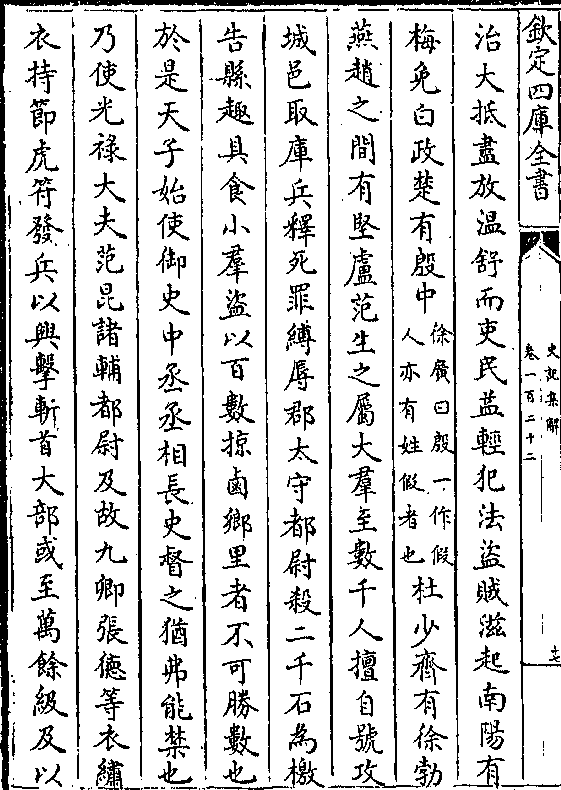 欽定四庫全書
史記集解
卷一百二十二
十七
治大抵盡放溫舒而吏民益輕犯法盜賊滋起南陽有
梅免白政楚有殷中徐廣曰殷一作假人亦有姓假者也杜少齊有徐勃
燕趙之間有堅盧范生之屬大羣至數千人擅自號攻
城邑取庫兵釋死罪縛辱郡太守都尉殺二千石為檄
告縣趣具食小羣盜以百數掠鹵鄉里者不可勝數也
於是天子始使御史中丞丞相長史督之猶弗能禁也
乃使光祿大夫范昆諸輔都尉及故九卿張德等衣繡
衣持節虎符發兵以興擊斬首大部或至萬餘級及以